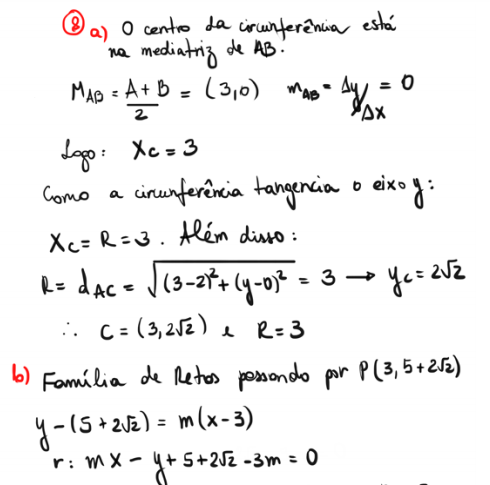 ⑧ a) O centro da circunferência está
na mediatriz de AB.
M_AB = (A + B)/2 = (3,0)   m_AB = Δy/Δx = 0
Logo: Xc = 3
Como a circunferência tangencia o eixo y:
Xc = R = 3. Além disso:
R = d_AC = √((3-2)² + (y-0)²) = 3 → yc = 2√2
∴ C = (3, 2√2) e R = 3
b) Família de Retas passando por P(3, 5+2√2)
y - (5 + 2√2) = m(x - 3)
r: mx - y + 5 + 2√2 - 3m = 0